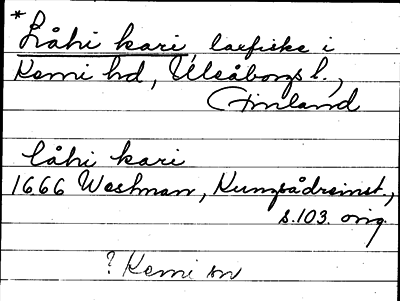 *Låhi kari, laxfiske i
Kemi hd, Uleåborgs l.,
Finland
låhi kari
1666 Westman, Kungsådreinst.,
s.103. orig.
? Kemi sn